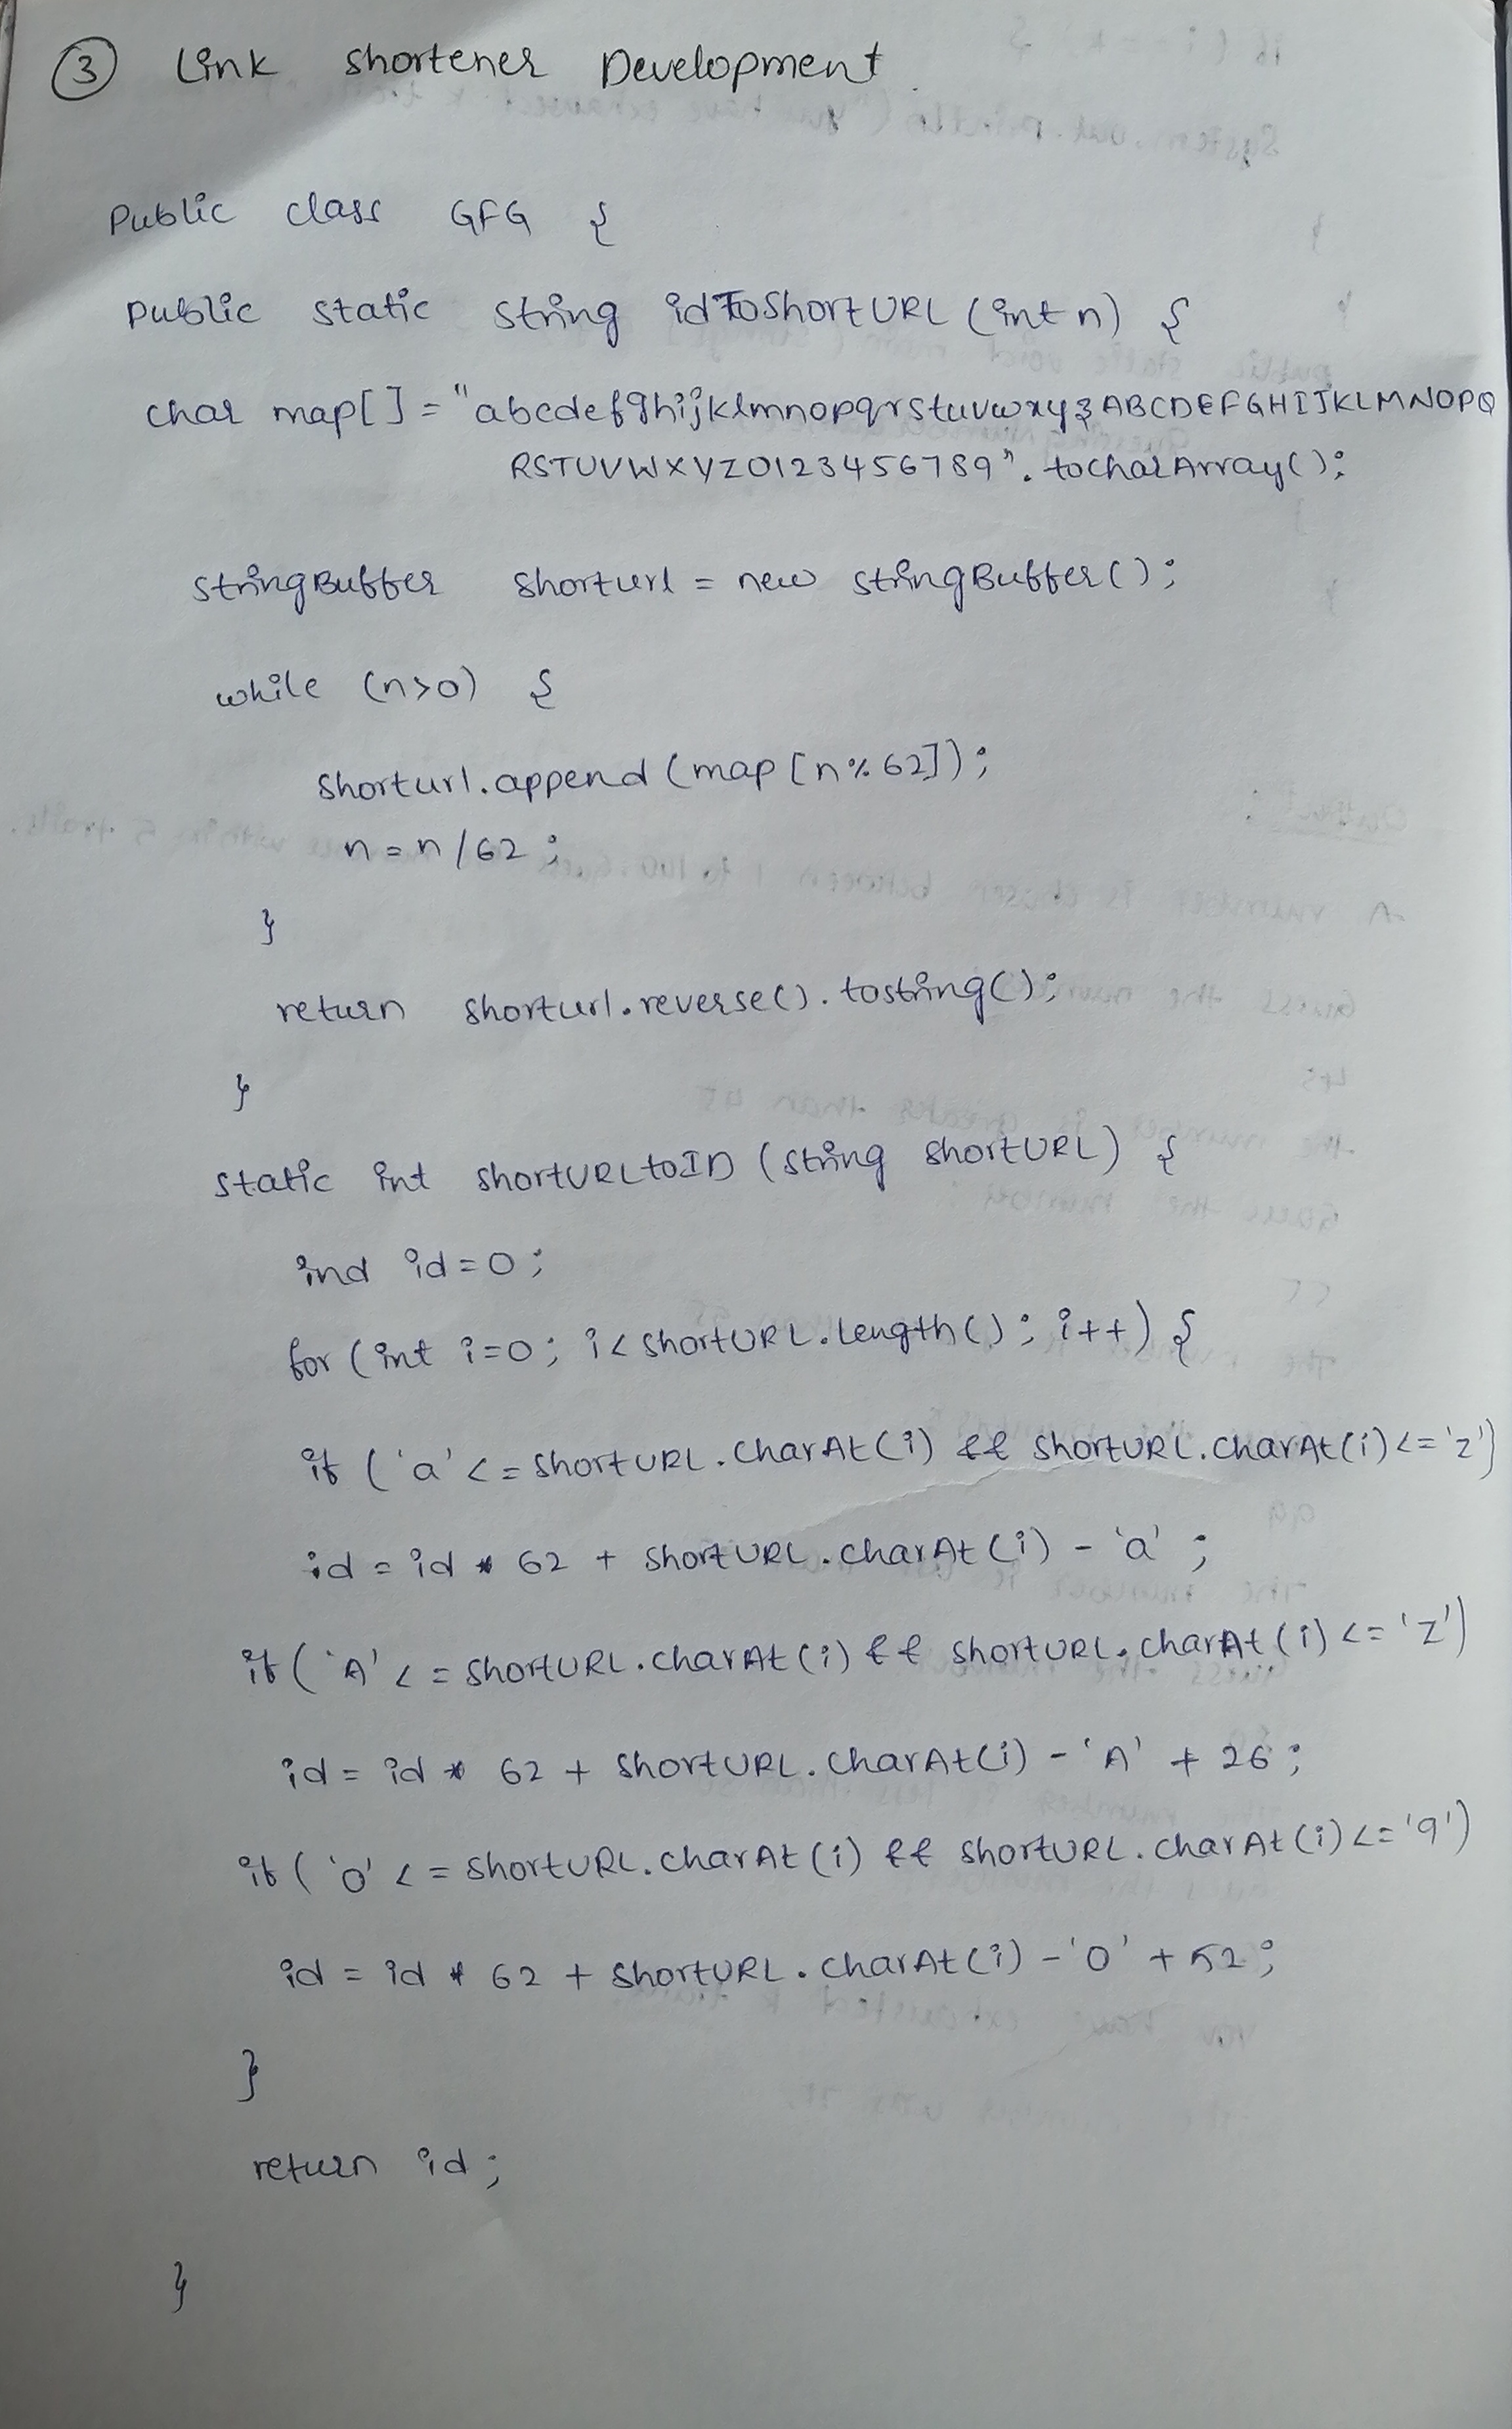 ③ Link Shortener Development
Public class GFG {
Public static string idToShortURL (int n) {
char map[] = "abcdefghijklmnopqrstuvwxyzABCDEFGHIJKLMNOPQ
RSTUVWXYZ0123456789". tocharArray();
stringBuffer shorturl = new stringBuffer();
while (n>0) {
shorturl.append (map [n%62]);
n=n/62;
}
return shorturl.reverse(). tostring();
}
static int shortURLtoID (string shortURL) {
ind id=0;
for (int i=0; i< shortURL.length(); i++) {
if ('a' <= shortURL.charAt(i) && shortURL.charAt(i) <= 'z')
id = id * 62 + shortURL.charAt(i) - 'a' ;
if ('A' <= shortURL.charAt(i) && shortURL.charAt(i) <= 'Z')
id = id * 62 + shortURL.charAt(i) - 'A' + 26;
if ('0' <= shortURL.charAt(i) && shortURL.charAt(i) <= '9')
id = id * 62 + shortURL.charAt(i) - '0' + 52;
}
return id;
}